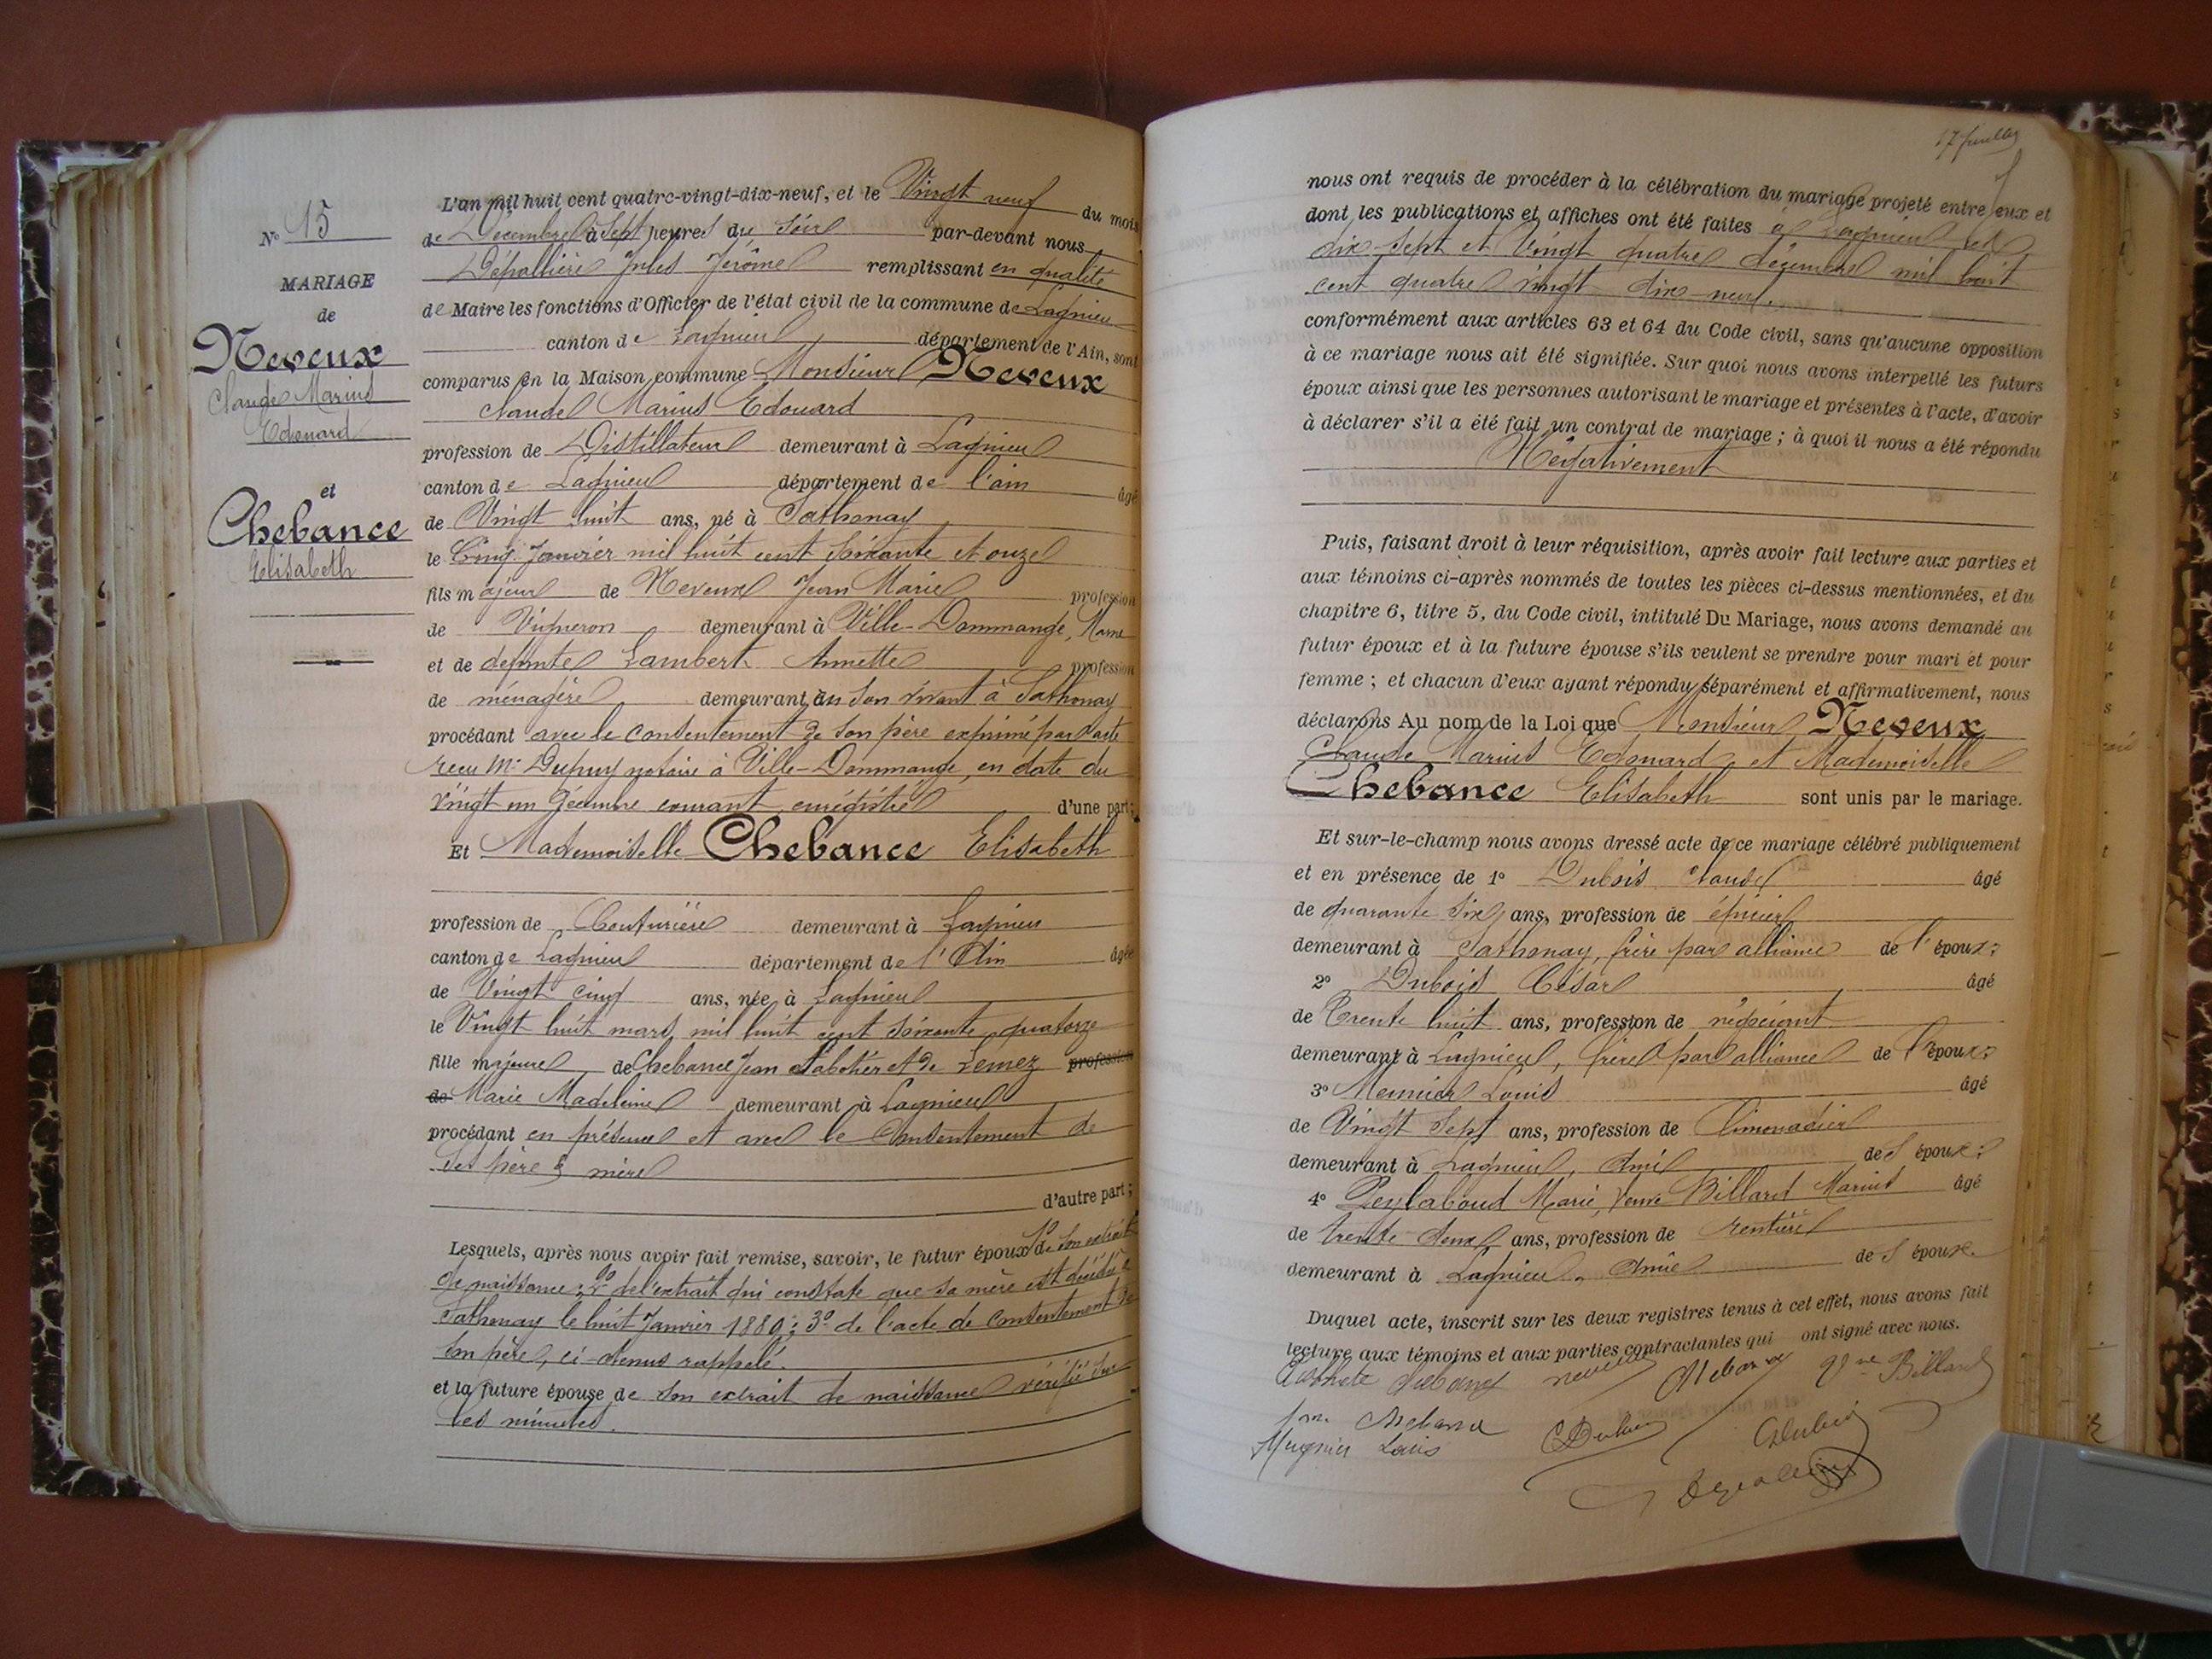 N° 15
MARIAGE
de
Neveux
Claude Marius
Edouard
et
Chebance
Elisabeth
L'an mil huit cent quatre-vingt-dix-neuf, et le Vingt neuf du mois
de Décembre à Sept heures du Soir par-devant nous
Dépallière Jules Jérôme remplissant en qualité
de Maire les fonctions d'Officier de l'état civil de la commune de Lagnieu
canton de Lagnieu département de l'Ain, sont
comparus en la Maison commune Monsieur Neveux
Claude Marius Edouard
profession de Distillateur demeurant à Lagnieu
canton de Lagnieu département de l'ain âgé
de Vingt huit ans, né à Sathonay
le Cinq Janvier mil huit cent soixante et onze
fils majeur de Neveux Jean Marie profession
de Vigneron demeurant à Ville-Dommange, Marne
et de defunte Lambert Annette profession
de ménagère demeurant en son vivant à Sathonay
procédant avec le consentement de son père exprimé par acte
recu Me Dupuy notaire à Ville-Dommange, en date du
vingt un décembre courant enrégistré d'une part;
Et Mademoiselle Chebance Elisabeth
profession de Couturière demeurant à Lagnieu
canton de Lagnieu département de l'Ain âgée
de Vingt cinq ans, née à Lagnieu
le Vingt huit mars mil huit cent soixante quatorze
fille majeure de Chebance Jean et de Lemez profession
de Marie Madeleine demeurant à Lagnieu
procédant en présence et avec le consentement de
ses père & mère
d'autre part;
Lesquels, après nous avoir fait remise, savoir, le futur époux 1° de son extrait
de naissance; 2° de l'extrait qui constate que sa mère est décédée à
Sathonay le huit Janvier 1880; 3° de l'acte de consentement de
son père, ci-dessus rappelé.
et la future épouse de son extrait de naissance vérifié sur
les minutes.
nous ont requis de procéder à la célébration du mariage projeté entre eux et
dont les publications et affiches ont été faites à Lagnieu les
dix-sept et Vingt quatre décembre mil huit
cent quatre vingt dix-neuf.
conformément aux articles 63 et 64 du Code civil, sans qu'aucune opposition
à ce mariage nous ait été signifiée. Sur quoi nous avons interpellé les futurs
époux ainsi que les personnes autorisant le mariage et présentes à l'acte, d'avoir
à déclarer s'il a été fait un contrat de mariage; à quoi il nous a été répondu
Négativement
Puis, faisant droit à leur réquisition, après avoir fait lecture aux parties et
aux témoins ci-après nommés de toutes les pièces ci-dessus mentionnées, et du
chapitre 6, titre 5, du Code civil, intitulé Du Mariage, nous avons demandé au
futur époux et à la future épouse s'ils veulent se prendre pour mari et pour
femme; et chacun d'eux ayant répondu séparément et affirmativement, nous
déclarons Au nom de la Loi que Monsieur Neveux
Claude Marius Edouard et Mademoiselle
Chebance Elisabeth sont unis par le mariage.
Et sur-le-champ nous avons dressé acte de ce mariage célébré publiquement
et en présence de 1° Dubois Claude âgé
de quarante six ans, profession de épicier
demeurant à Sathonay, frère par alliance de l'époux;
2° Dubois César âgé
de Trente huit ans, profession de négociant
demeurant à Lagnieu, frère par alliance de l'époux;
3° Meunier Louis âgé
de Vingt Sept ans, profession de limonadier
demeurant à Lagnieu, Ami des époux;
4° Peylaboud Marie, Veuve Billard Marius âgé
de trente deux ans, profession de rentière
demeurant à Lagnieu, Amie des époux.
Duquel acte, inscrit sur les deux registres tenus à cet effet, nous avons fait
lecture aux témoins et aux parties contractantes qui ont signé avec nous.
Chebance Vve Billard
Louis